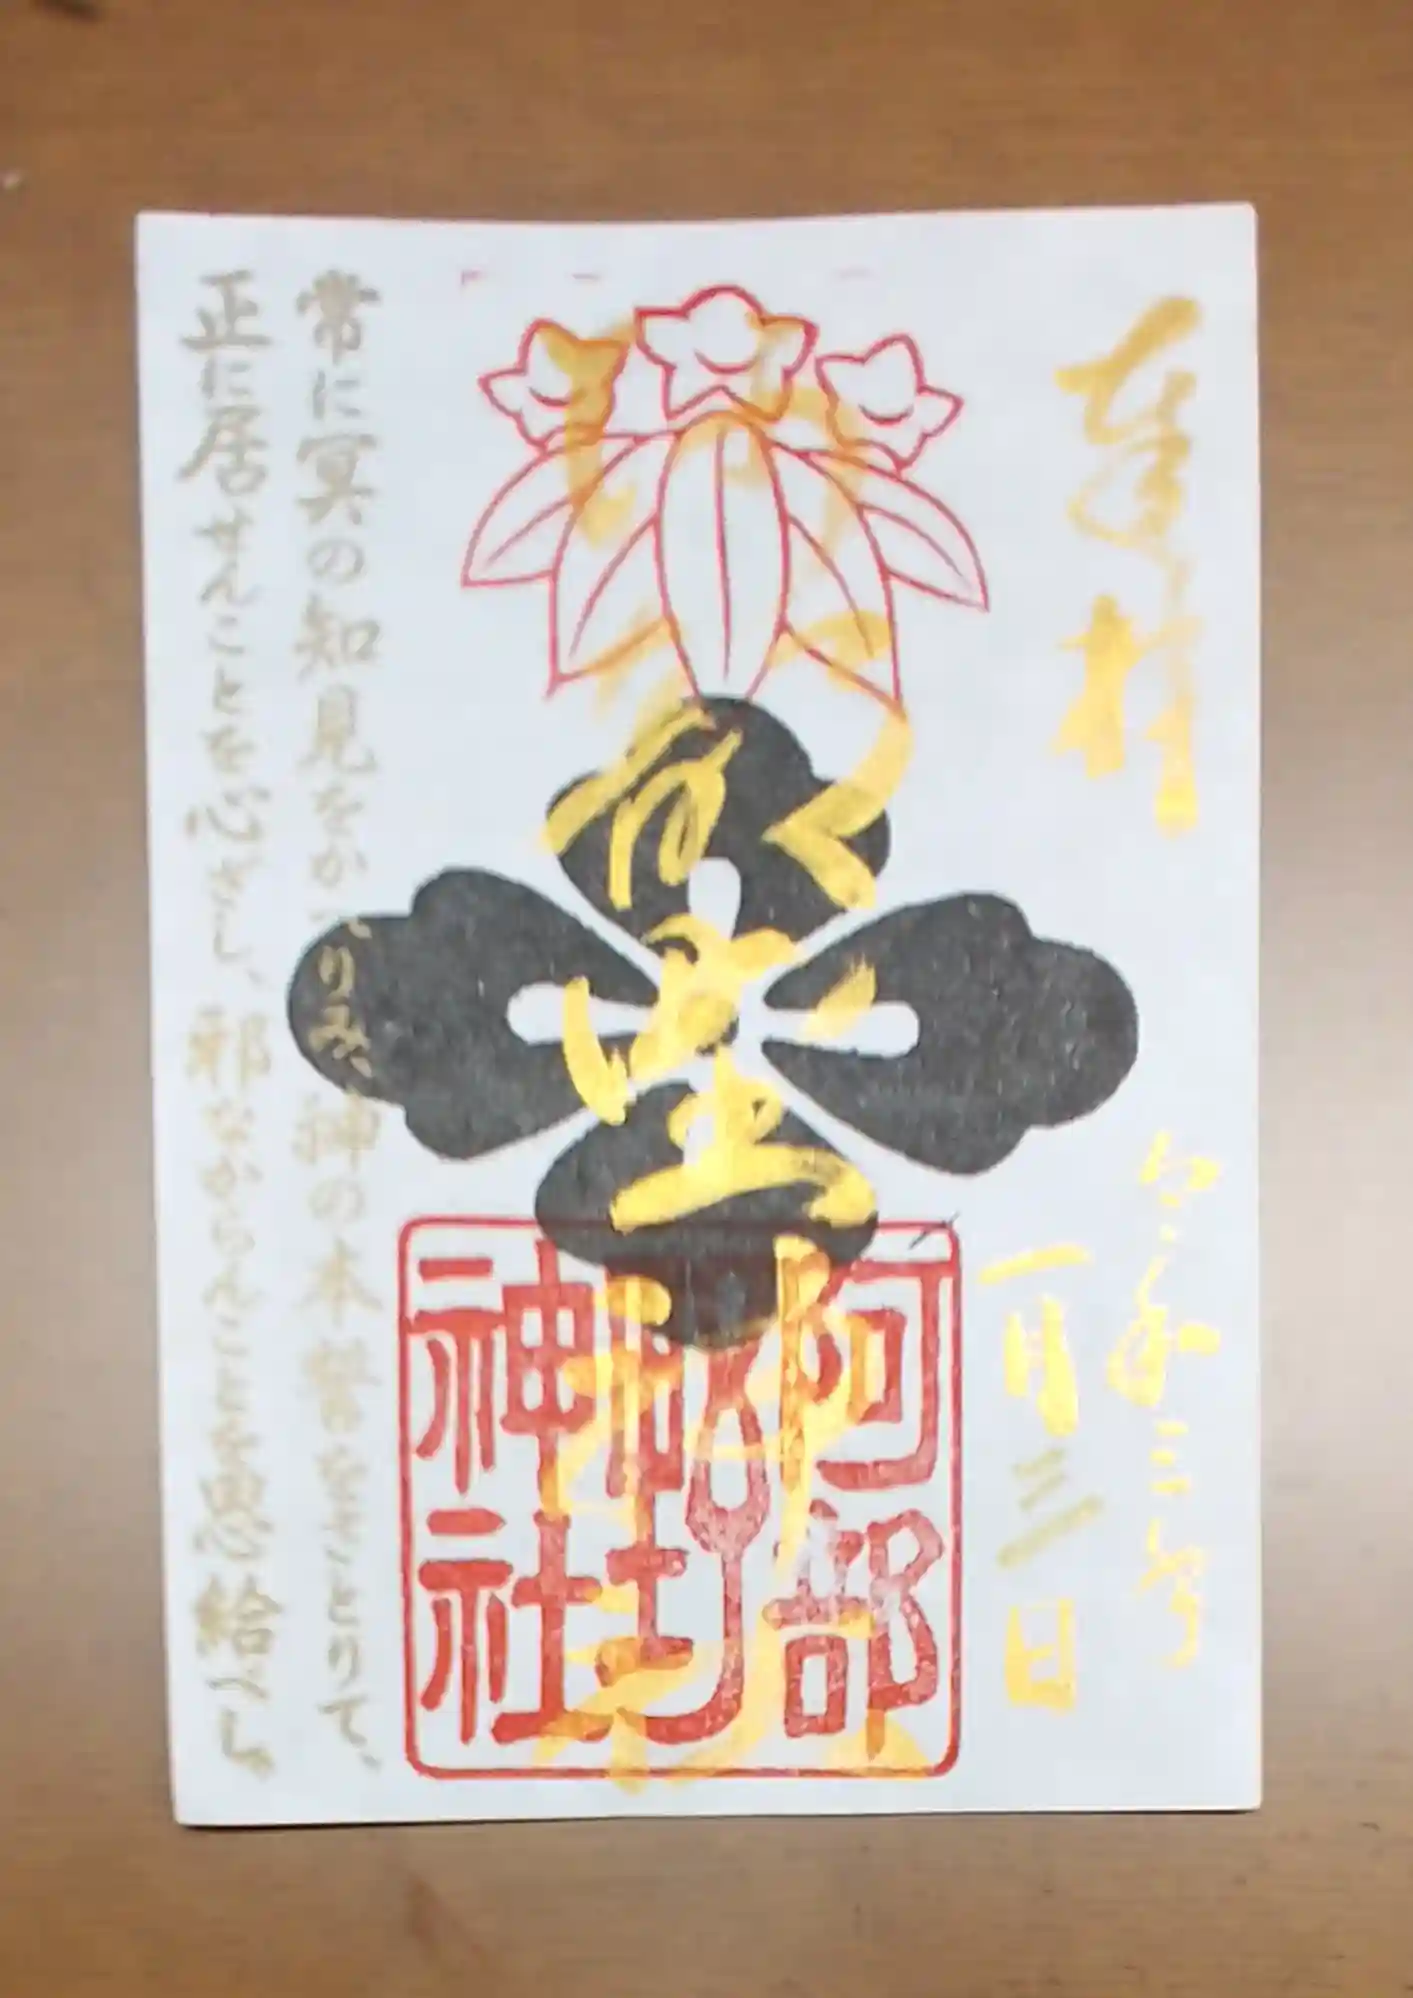 奉拝
令和三年
一月三日
阿部野神社
常に冥の知見をかへりみ、神の本誓をさとりて、
正に居せんことを心ざし、邪なからんことを思給べし。